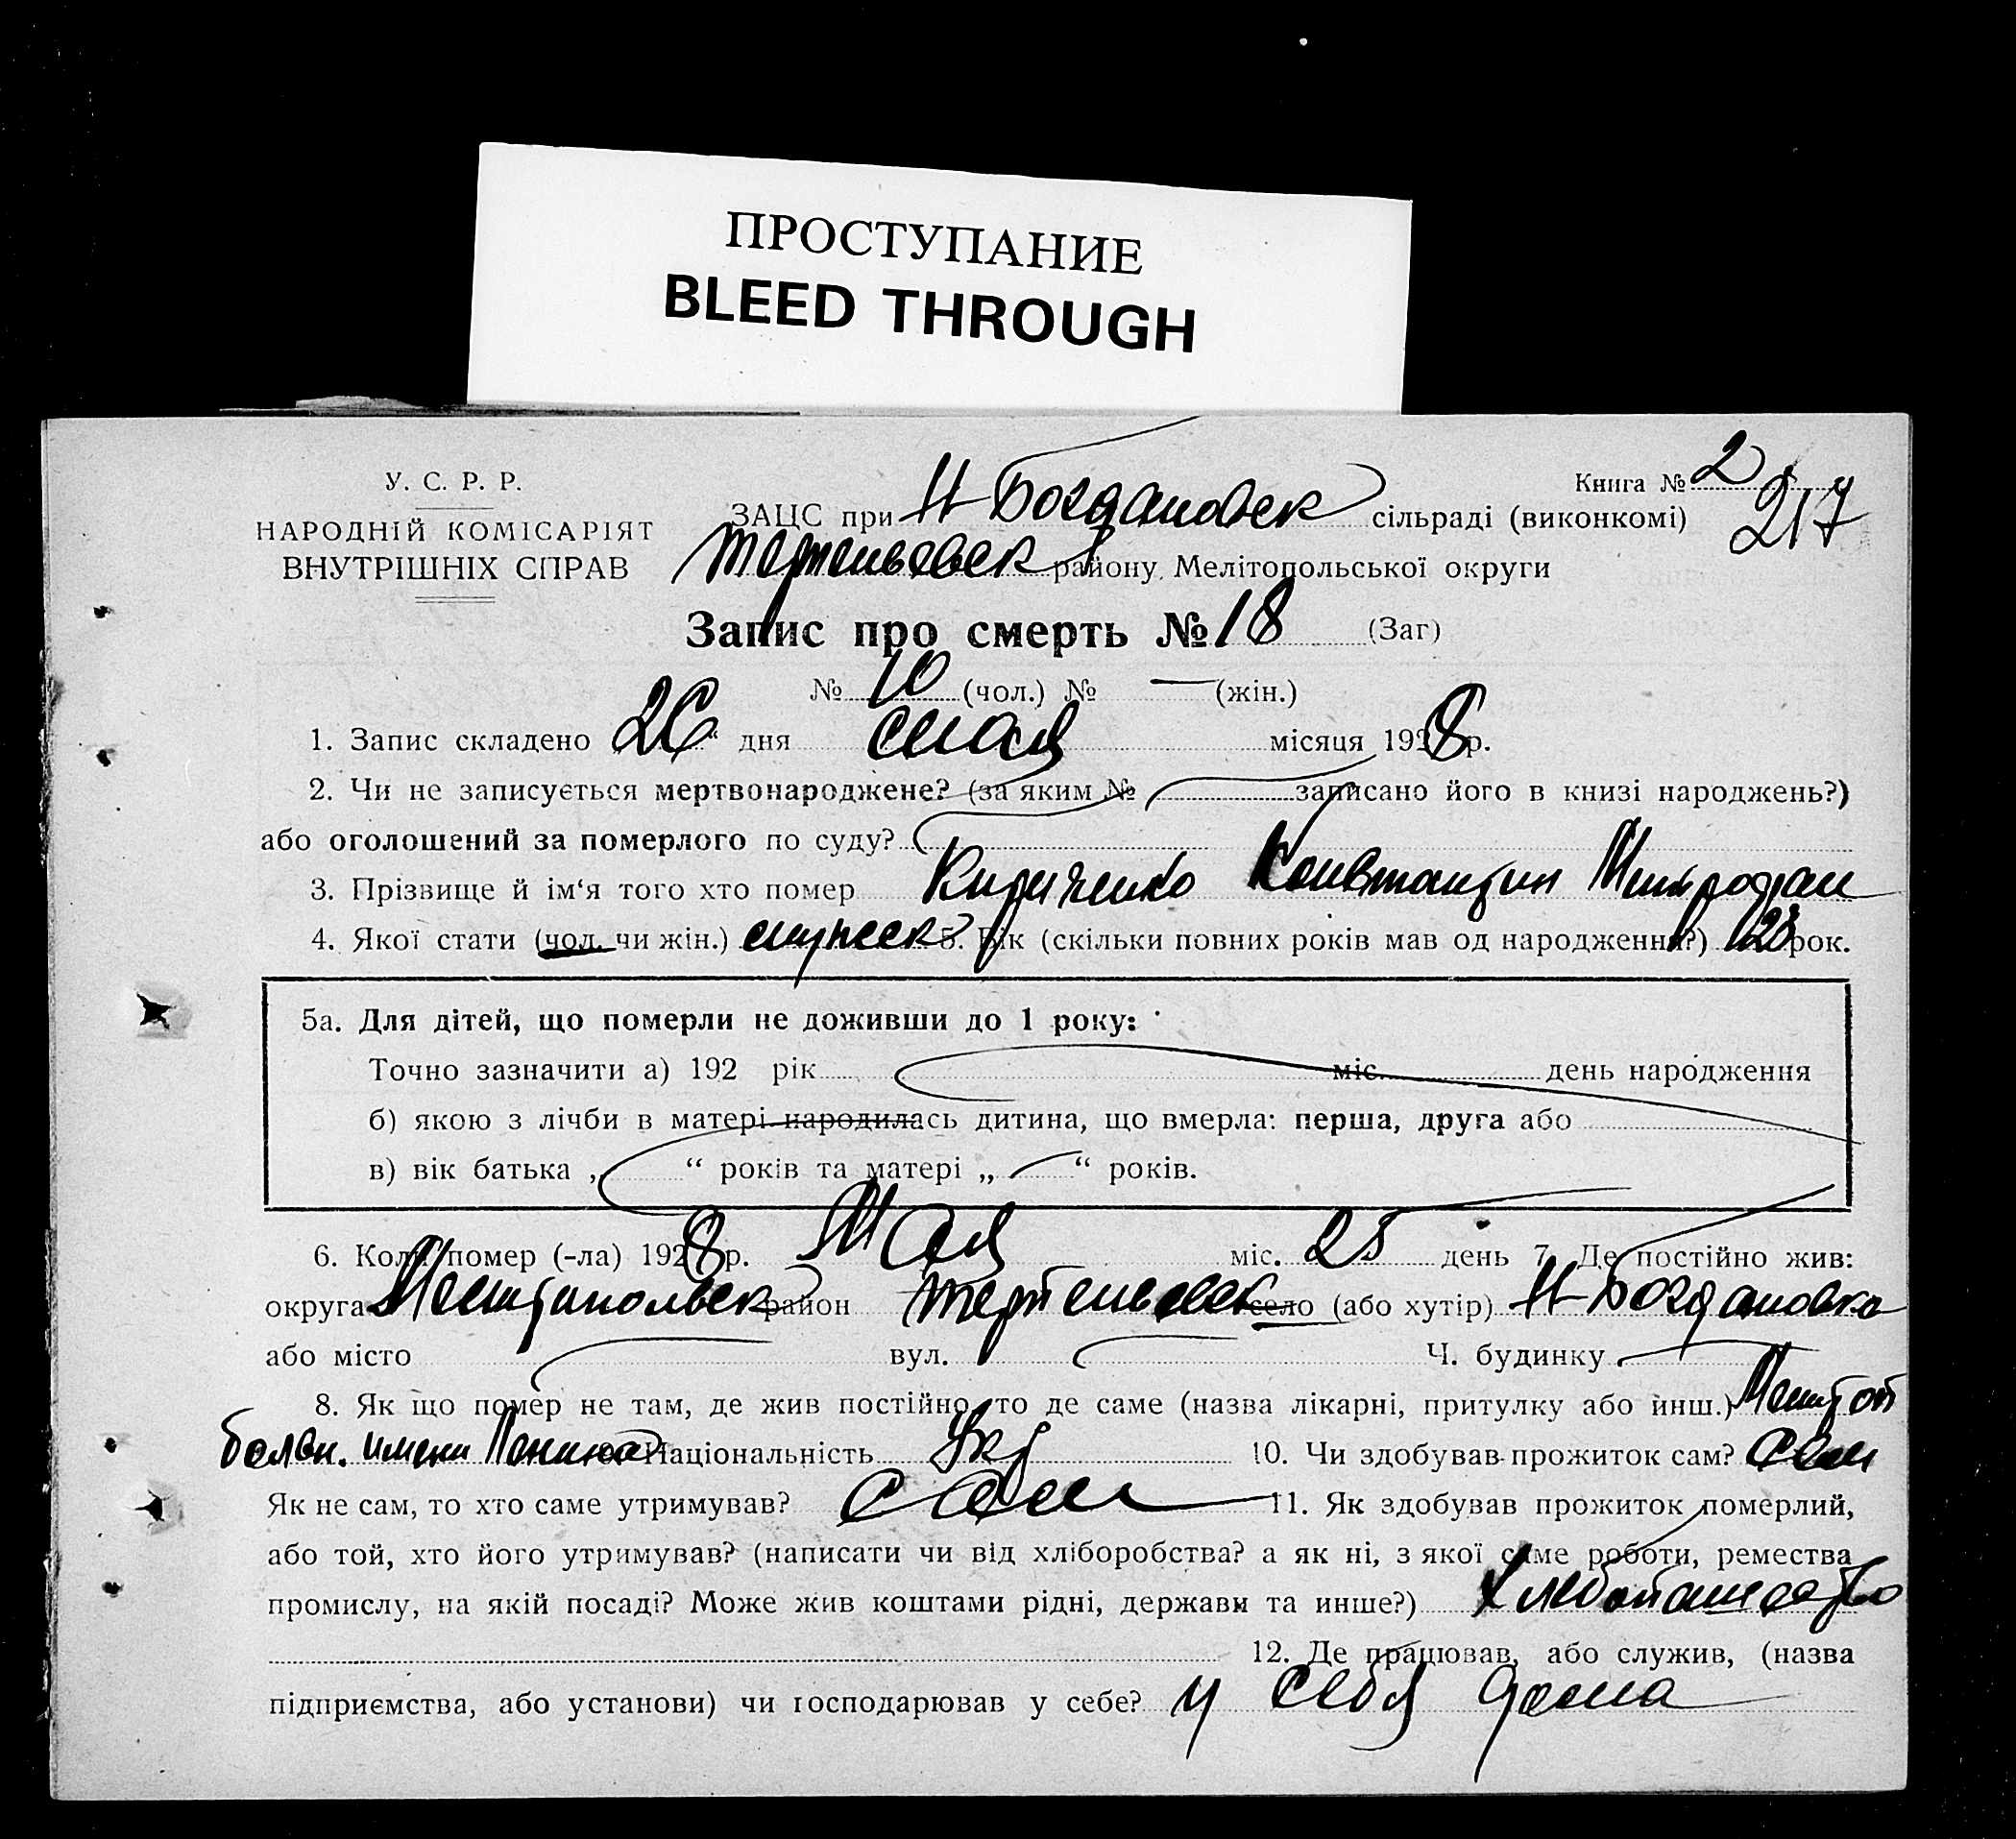 ПРОСТУПАНИЕ
BLEED THROUGH
У. С. Р. Р.
НАРОДНІЙ КОМІСАРІЯТ
ВНУТРІШНІХ СПРАВ
Книга № 2
217
ЗАЦС при Н Богдановск сільраді (виконкомі)
району Мелітопольської округи
Запис про смерть № 18 (Заг)
№ 10 (чол.) № — (жін.)
1. Запис складено 26 " дня мая місяця 1928 р.
2. Чи не записується мертвонароджене? (за яким № записано його в книзі народжень?)
або оголошений за померлого по суду?
3. Прізвище й ім‘я того хто помер Кириченко Константин Митрофан
4. Якої стати (чол. чи жін.) мужск 5. Вік (скільки повних років мав од народження?) 23 рок.
5а. Для дітей, що померли не доживши до 1 року:
Точно зазначити а) 192 рік міс. день народження
б) якою з лічби в матері народилась дитина, що вмерла: перша, друга або
в) вік батька „ “ років та матері „ “ років.
6. Коли помер (-ла) 1928 р. Мая міс. 25 день 7. Де постійно жив:
округа Мелитопольск район село (або хутір) Н-Богдановка
або місто вул. Ч. будинку
8. Як що помер не там, де жив постійно, то де саме (назва лікарні, притулку або инш.) Мелитоп
больн. имени Ленина Національність Укр 10. Чи здобував прожиток сам? сам
Як не сам, то хто саме утримував? сам 11. Як здобував прожиток померлий,
або той, хто його утримував? (написати чи від хліборобства? а як ні, з якої саме роботи, ремества
промислу, на якій посаді? Може жив коштами рідні, держави та инше?) Хлебопашество
12. Де працював, або служив, (назва
підприємства, або установи) чи господарював у себе? У себя дома